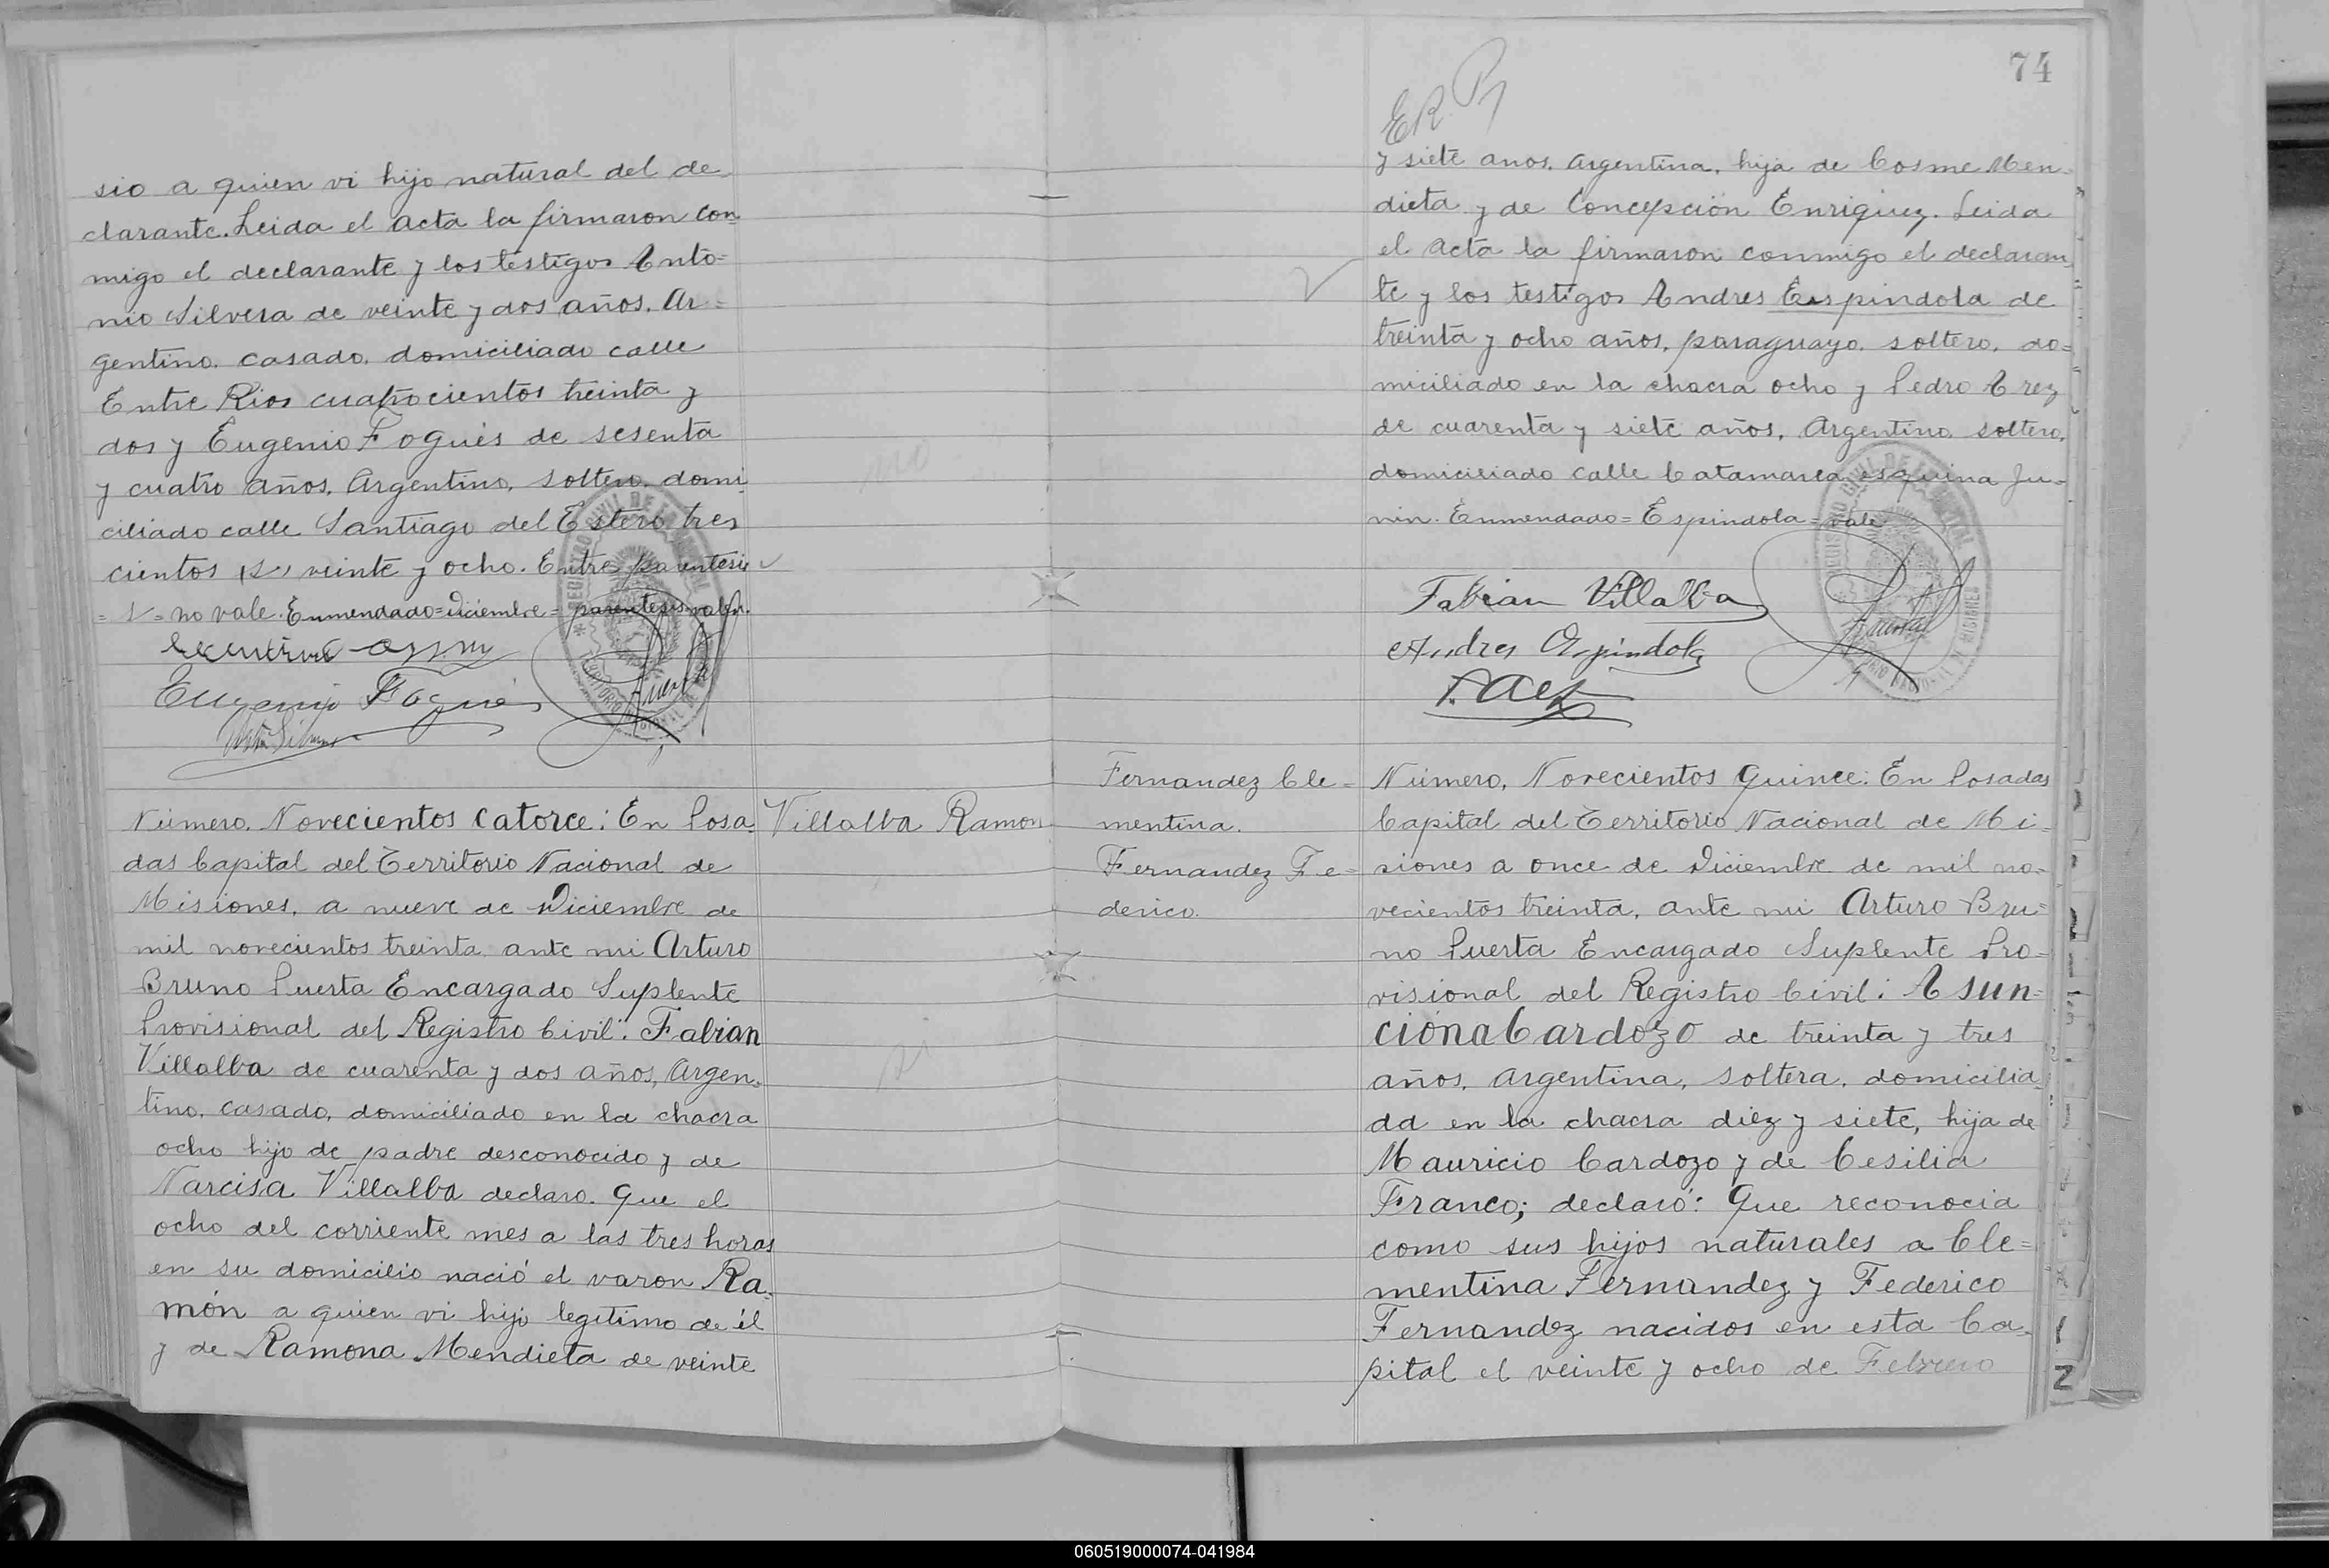 sio a quien vi hijo natural del de
clarante. Leida el acta la firmaron con
migo el declarante y los testigos Anto=
nio Silvera de veinte y dos años. Ar=
gentino. casado. domiciliado calle
Entre Rios cuatrocientos treinta y
dos y Eugenio Fogués de sesenta
y cuatro años. Argentino, soltero. domi
ciliado calle Santiago del Estero tres
cientos (s) veinte y ocho. Entre parentesis
= s = no vale. Enmendado=Diciembre=parentesis=valen.
Eugenio Fogués
Número. Novecientos catorce: En Posa
das Capital del Territorio Nacional de
Misiones, a nueve de Diciembre de
mil novecientos treinta ante mi Arturo
Bruno Puerta Encargado Suplente
Provisional del Registro Civil: Fabian
Villalba de cuarenta y dos años, Argen-
tino, casado, domiciliado en la chacra
ocho hijo de padre desconocido y de
Narcisa Villalba declaro. Que el
ocho del corriente mes a las tres horas
en su domicilio nació el varon Ra-
món a quien vi hijo legitimo de él
y de Ramona Mendieta de veinte
Villalba Ramon
74
E R P
y siete anos. Argentina, hija de Cosme Men-
dieta y de Concepción Enriquez. Leida
el acta la firmaron conmigo el declaran
te y los testigos Andres Espindola de
treinta y ocho años, paraguayo. soltero, do=
miciliado en la chacra ocho y Pedro Arez
de cuarenta y siete años, Argentino soltero,
domiciliado calle Catamarca esquina Ju-
nin. Enmendado=Espindola=vale
Fabian Villalba
Andres Espindola
Fernandez Cle=
mentina.
Fernandez Fe=
derico.
Número, Novecientos Quince: En Posadas
Capital del Territorio Nacional de Mi-
siones a once de Diciembre de mil no-
vecientos treinta, ante mi Arturo Bru=
no Puerta Encargado Suplente Pro-
visional del Registro Civil: Asun=
ciona Cardozo de treinta y tres
años, argentina, soltera, domicilia
da en la chacra diez y siete, hija de
Mauricio Cardozo y de Cesilia
Franco; declaró: Que reconocia
como sus hijos naturales a Cle=
mentina Fernandez y Federico
Fernandez nacidos en esta Ca-
pital el veinte y ocho de Febrero
060519000074-041984